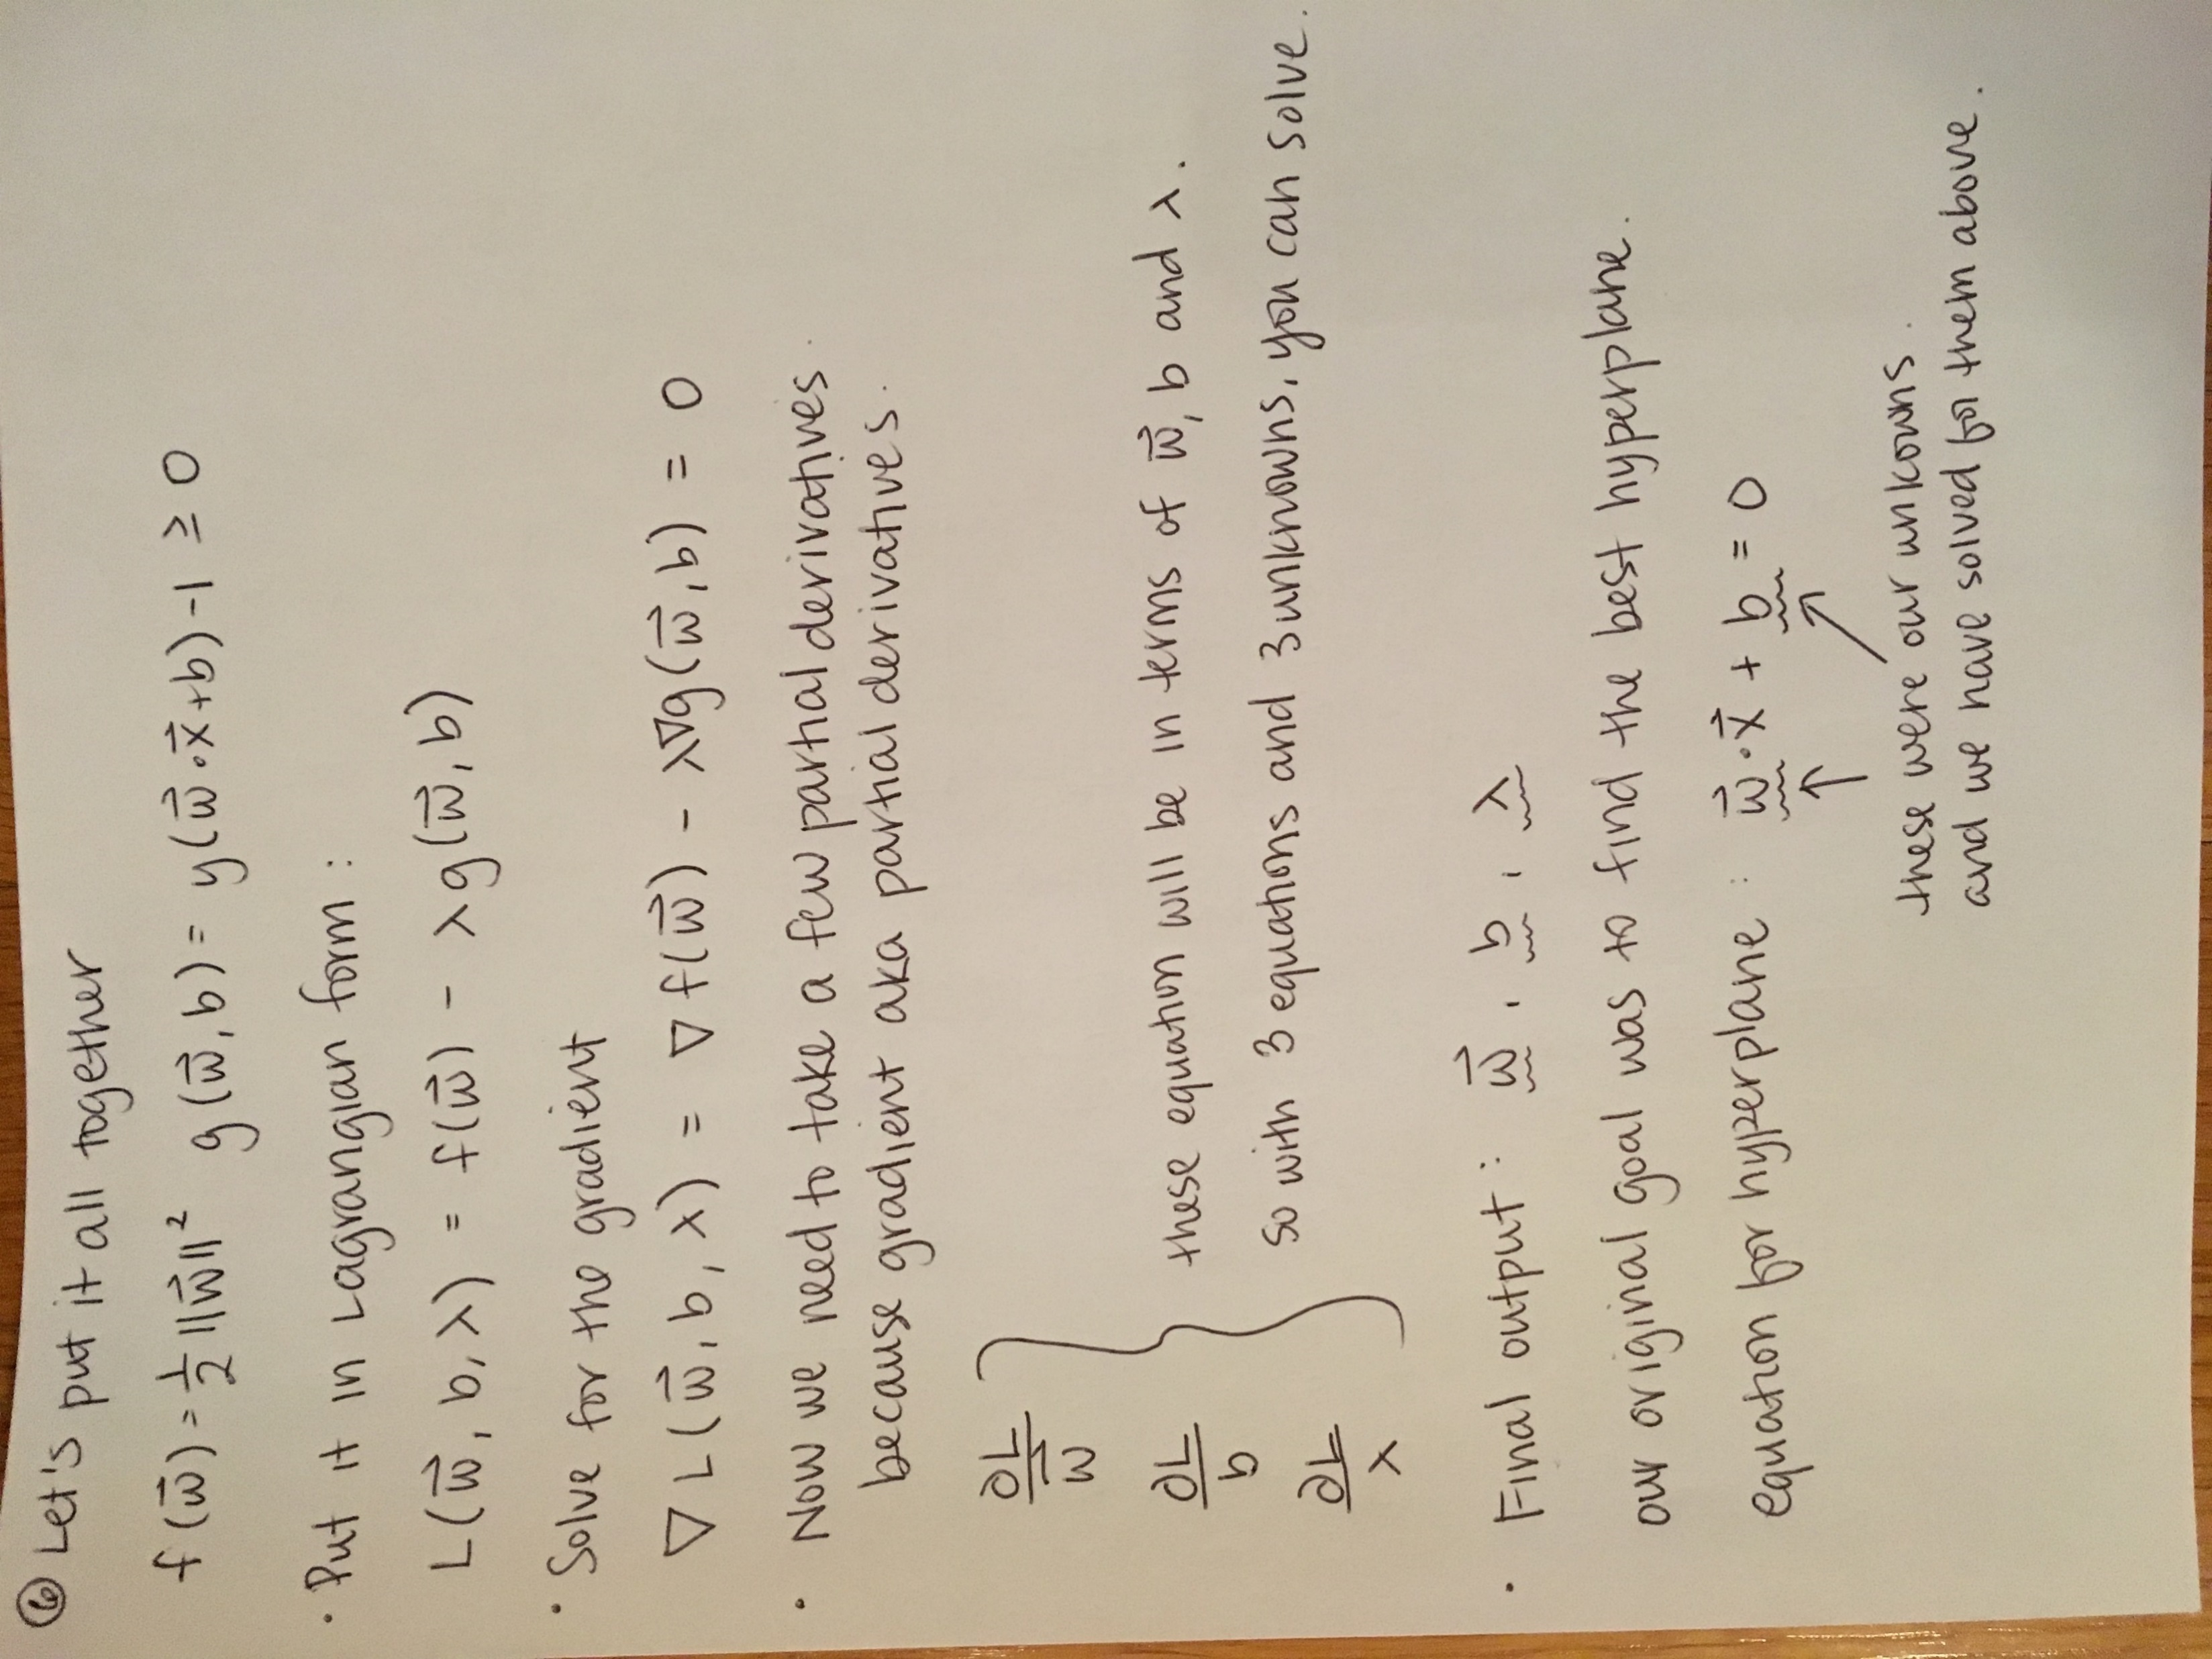 ⑥ Let's put it all together
f(w⃗) = ½ ||w⃗||² g(w⃗, b) = y(w⃗·x⃗+b) -1 ≥ 0
· Put it in Lagrangian form :
L(w⃗, b, λ) = f(w⃗) - λg(w⃗, b)
· Solve for the gradient
∇L(w⃗, b, λ) = ∇f(w⃗) - λ∇g(w⃗, b) = 0
· Now we need to take a few partial derivatives.
because gradient aka partial derivatives.
∂L/w
∂L/b
∂L/λ
these equation will be in terms of w⃗, b and λ.
so with 3 equations and 3 unknowns, you can solve.
· Final output : w⃗ , b , λ
our original goal was to find the best hyperplane.
equation for hyperplane : w⃗ · x⃗ + b = 0
these were our unkowns.
and we have solved for them above.